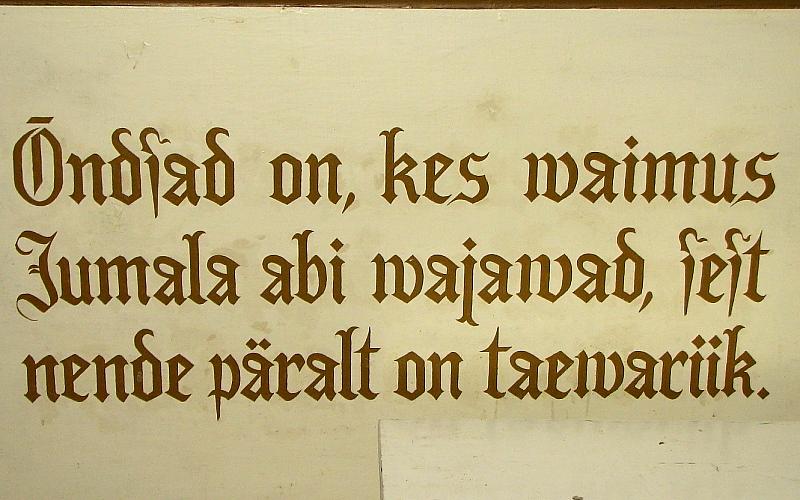 Õndſad on, kes waimus
Jumala abi wajawad, ſeſt
nende päralt on taewariik.